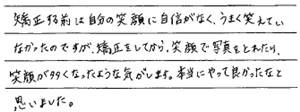 矯正する前は自分の笑顔に自信がなく、うまく笑えてい
なかったのですが、矯正をしてから、笑顔で写真をとれたり、
笑顔が多くなったような気がします。本当にやって良かったなと
思いました。